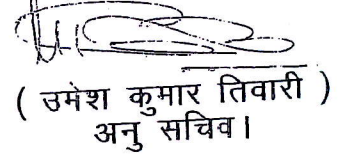 ( उमेश कुमार तिवारी )
अनु सचिव।